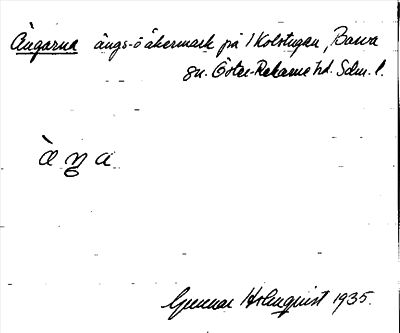 Ängarna ängs- o åkermark på 1 Kolstugan, Barva
sn. Öster-Rekarne hd. Sdm. l.
àŋa
Gunnar Holmquist 1935.